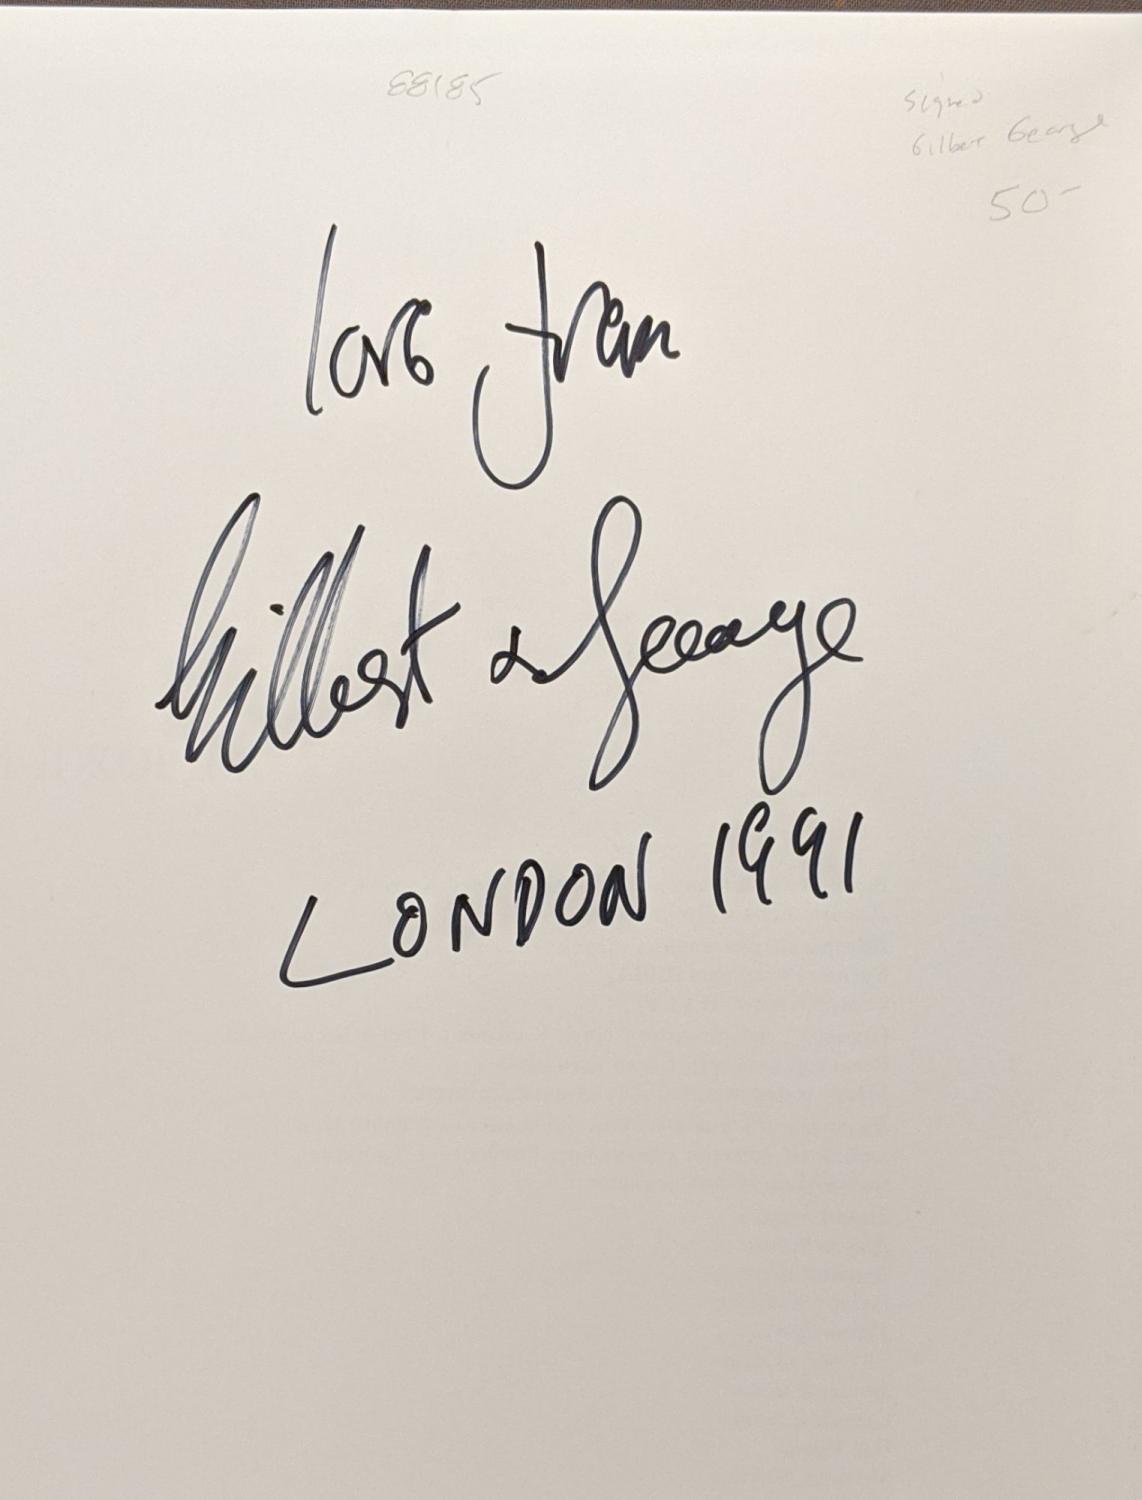 88185
Signed
Gilbert George
50-
love from
Gilbert & George
LONDON 1991